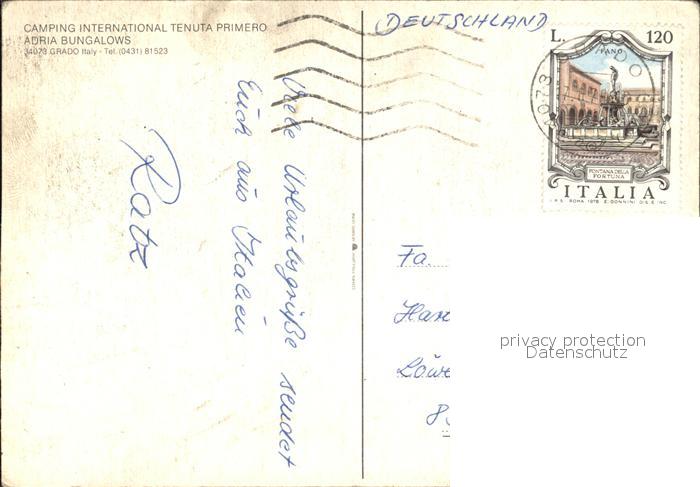 CAMPING INTERNATIONAL TENUTA PRIMERO
ADRIA BUNGALOWS
34073 GRADO Italy - Tel. (0431) 81523
DEUTSCHLAND
L. 120
FANO
FONTANA DELLA
FORTUNA
ITALIA
I.P.S. ROMA 1978 E. DONNINI DIS. E INC.
Viele Urlaubsgrüße sendet
Euch aus Italien
Ratz
Fa.
Löwe
8
privacy protection
Datenschutz